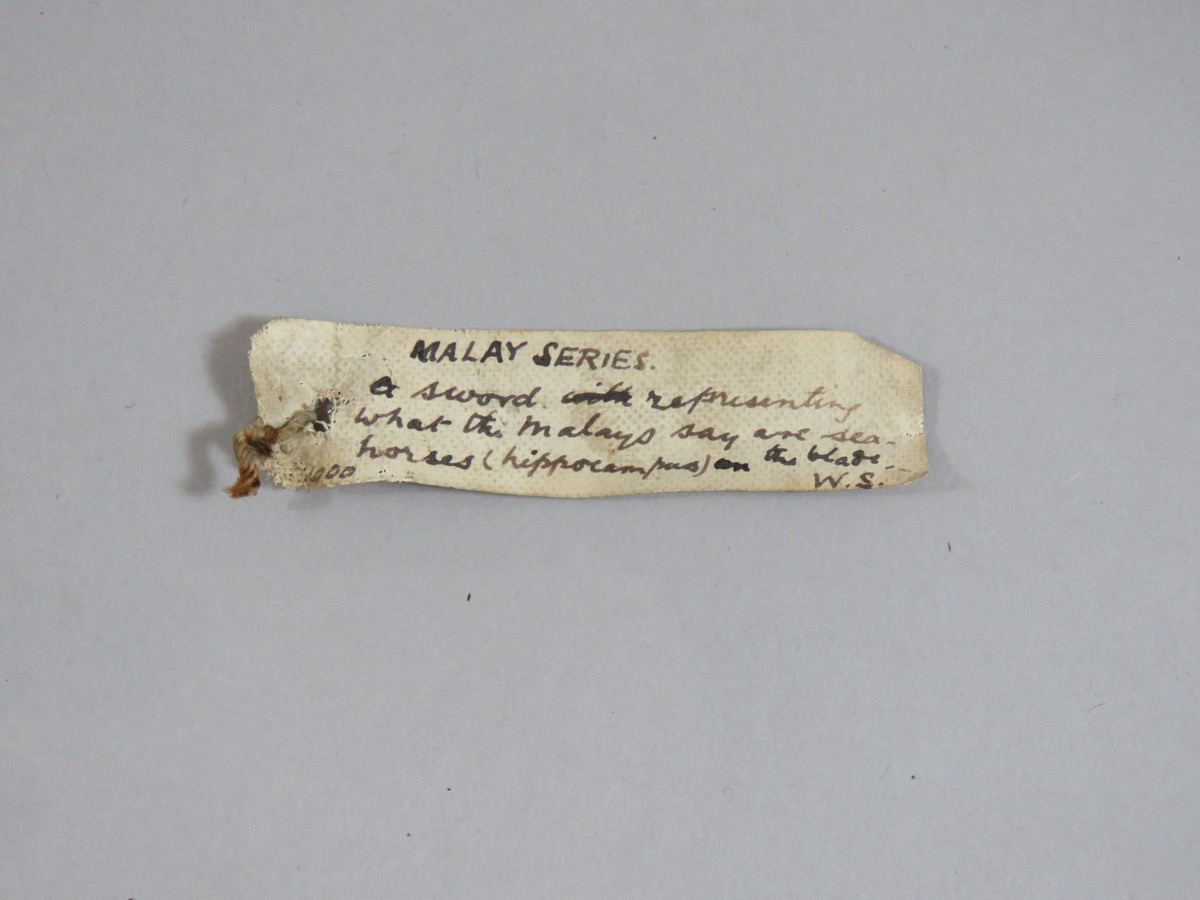 MALAY SERIES.
A sword with representing
what the Malays say are sea-
horses (hippocampus) on the blade.
1900 W.S.